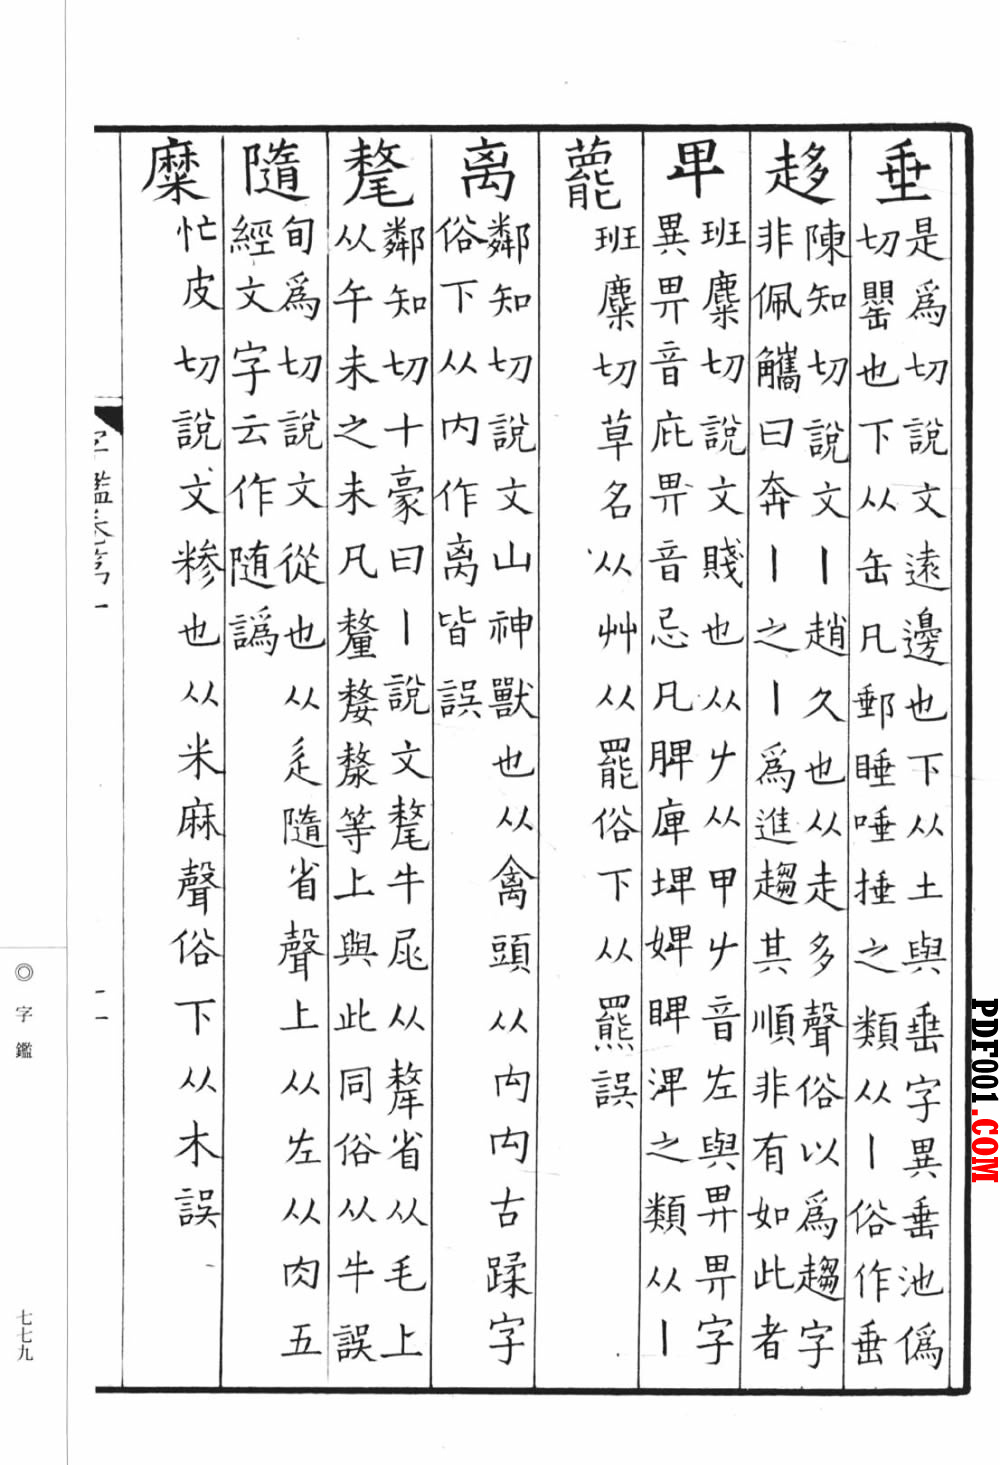 垂
是爲切說文遠邊也下从土與埀字異垂池僞
切罌也下从缶凡郵睡唾捶之類从丨俗作垂
趍
陳知切說文丨趙久也从走多聲俗以爲趨字
非佩觿曰奔丨之丨爲進趨其順非有如此者
𤰞
班麋切說文賤也从𠂇从甲𠂇音左與畀畁字
異畀音庇畁音忌凡脾庳埤婢睥渒之類从丨
䓯
班麋切草名从艸从罷俗下从羆誤
离
鄰知切說文山神獸也从禽頭从禸禸古蹂字
俗下从内作离皆誤
氂
鄰知切十豪曰丨說文氂牛尾从犛省从毛上
从午未之未凡釐嫠漦等上與此同俗从牛誤
隨
旬爲切說文從也从辵隋省聲上从左从肉五
經文字云作随譌
糜
忙皮切說文糝也从米麻聲俗下从木誤
字鑑卷第一
二一
◎字鑑
七七九
PDF001.COM